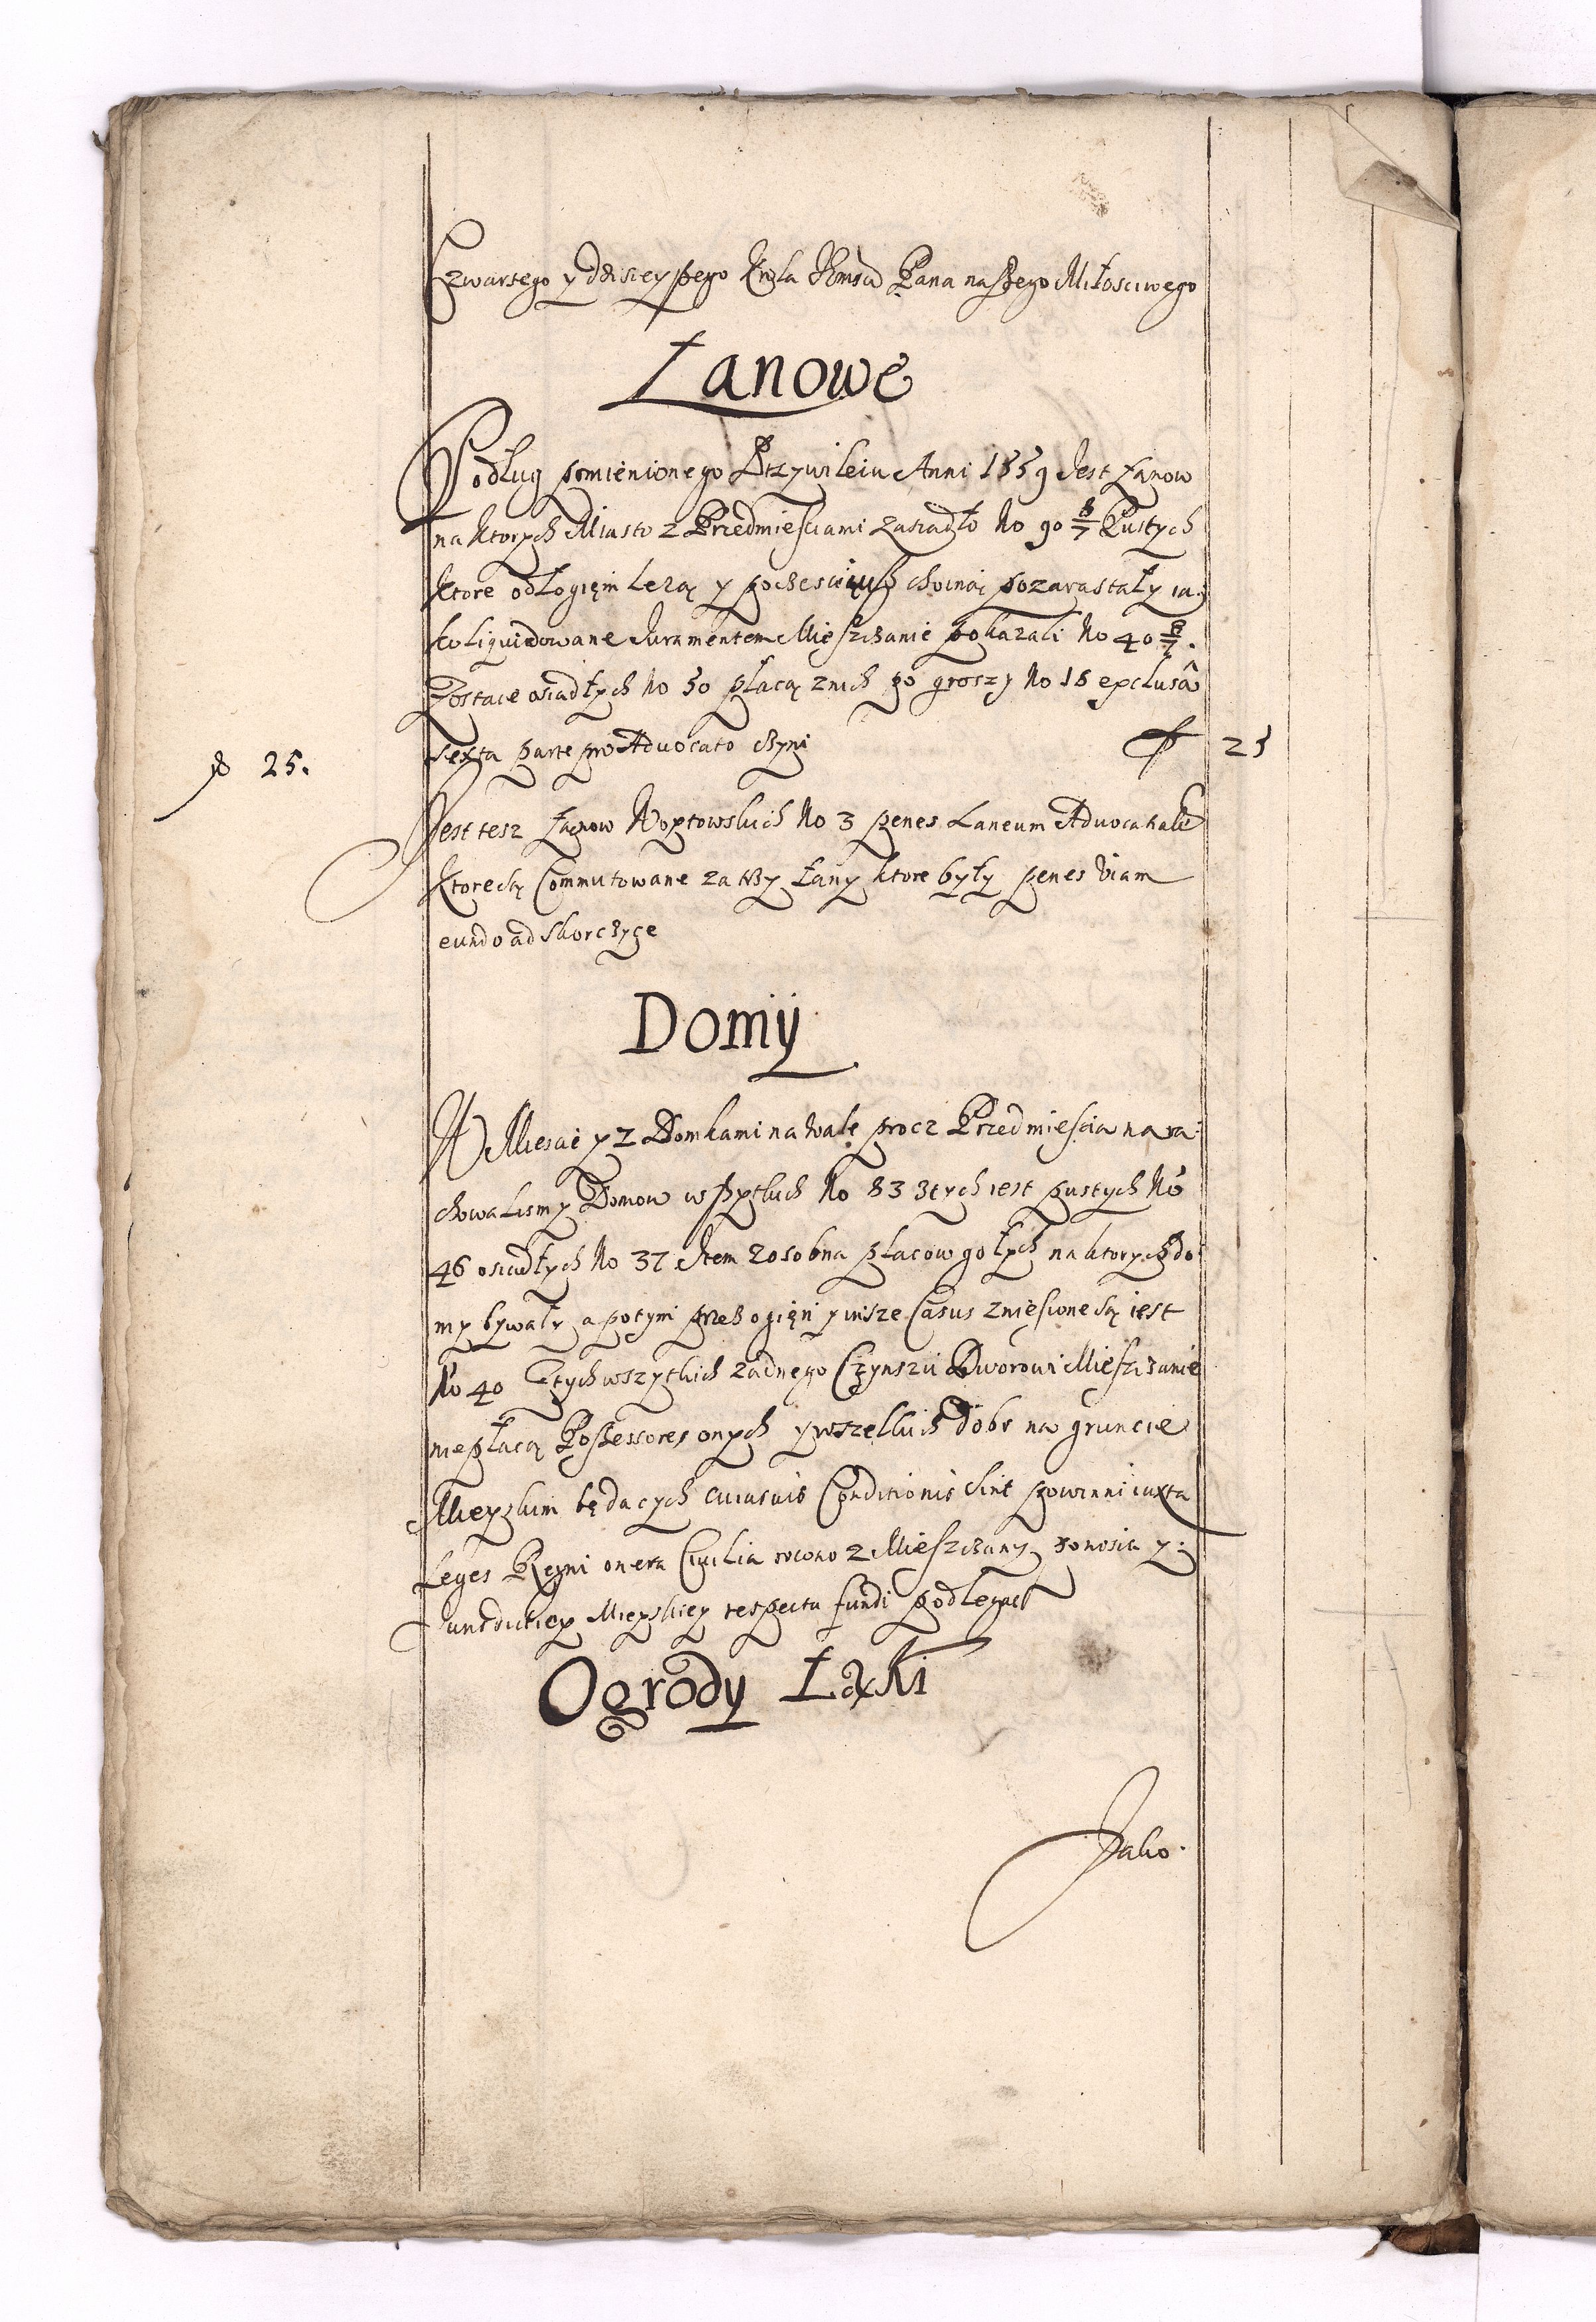 Czwartego y dzisieyszego Krola Jemsci Pana naszego Miłosciwego
Łanowe
Podług pomienionego Przywileiu Anni 1559 Jest Łanow
na ktorych Miasto z Przedmiesciami zasiadło No 90 Pustych
ktore odłogięm lezą y poczesci choiną pozarastały ia:
ko liquidowane Juramentem Mieszczanie pokazali No 40
Zostaie osiadłych No 50 płacą znich po groszy No 18 exclusa
sexta parte pro Advocato czyni f 25
f 25.
Jest tesz Łanow Woytowskich No 3 penes Laneum Advocatale
ktore są Commutowane za trzy Łany ktore były penes viam
eundo ad Skorczyce
Domÿ
W Miescie y z Domkami na wale procz Przedmiescia nara:
chowalismy Domow wszytkich No 83 Ztych iest pustych No
46 osiadłych No 37 Item zosobna placow gołych na ktorych do:
my bywały a potym przez ogięn y insze Casus zniesione są iest
No 40 Ztych wszytkich zadnego Czynszu Dworowi Mieszczanie
nie płacą Possessores onych y wszelkich dobr na gruncie
Mieyskim będacych cuiusvis Conditionis sint powinni iuxta
Leges Regni onera Civilia rowno z Mieszczany ponosic y
Jurisdictiey Mieyskiey respectu fundi podlegac
Ogrody Łąki
Jako.